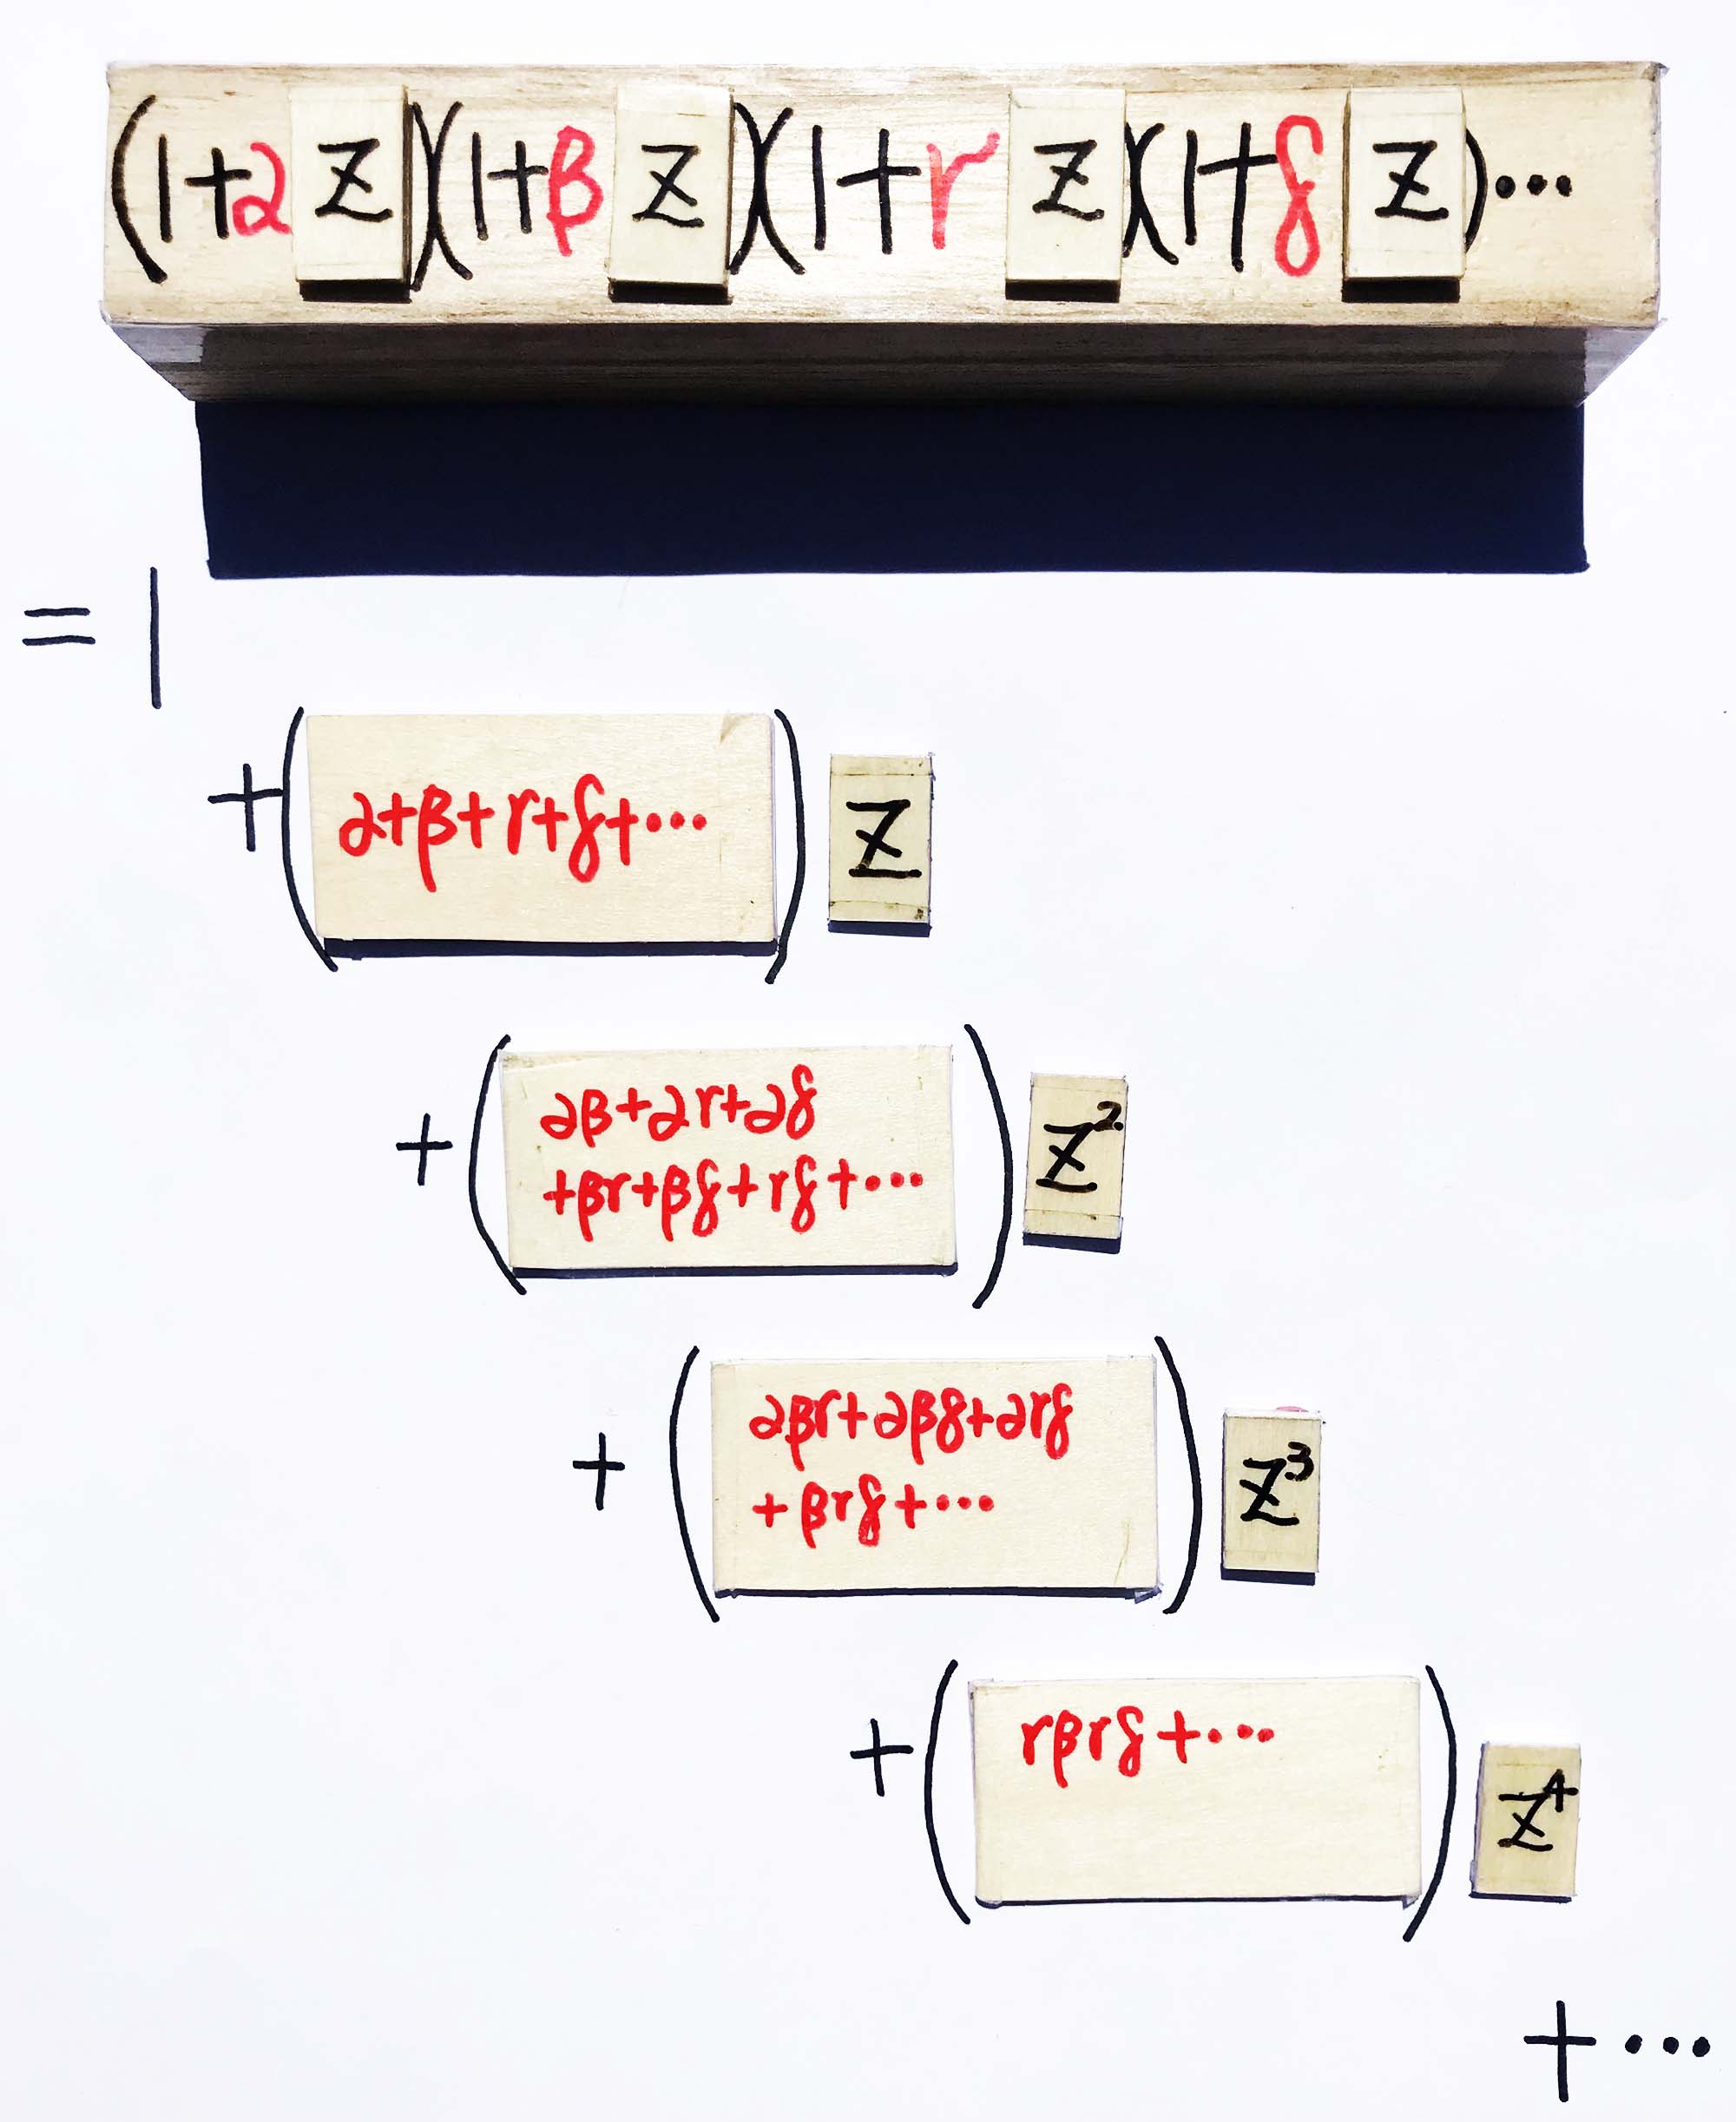 (1+αz)(1+βz)(1+γz)(1+δz)⋯
= 1
+(α+β+γ+δ+⋯)z
+(αβ+αγ+αδ
+βγ+βδ+γδ+⋯)z²
+(αβγ+αβδ+αγδ
+βγδ+⋯)z³
+(γβγδ+⋯)z⁴
+⋯